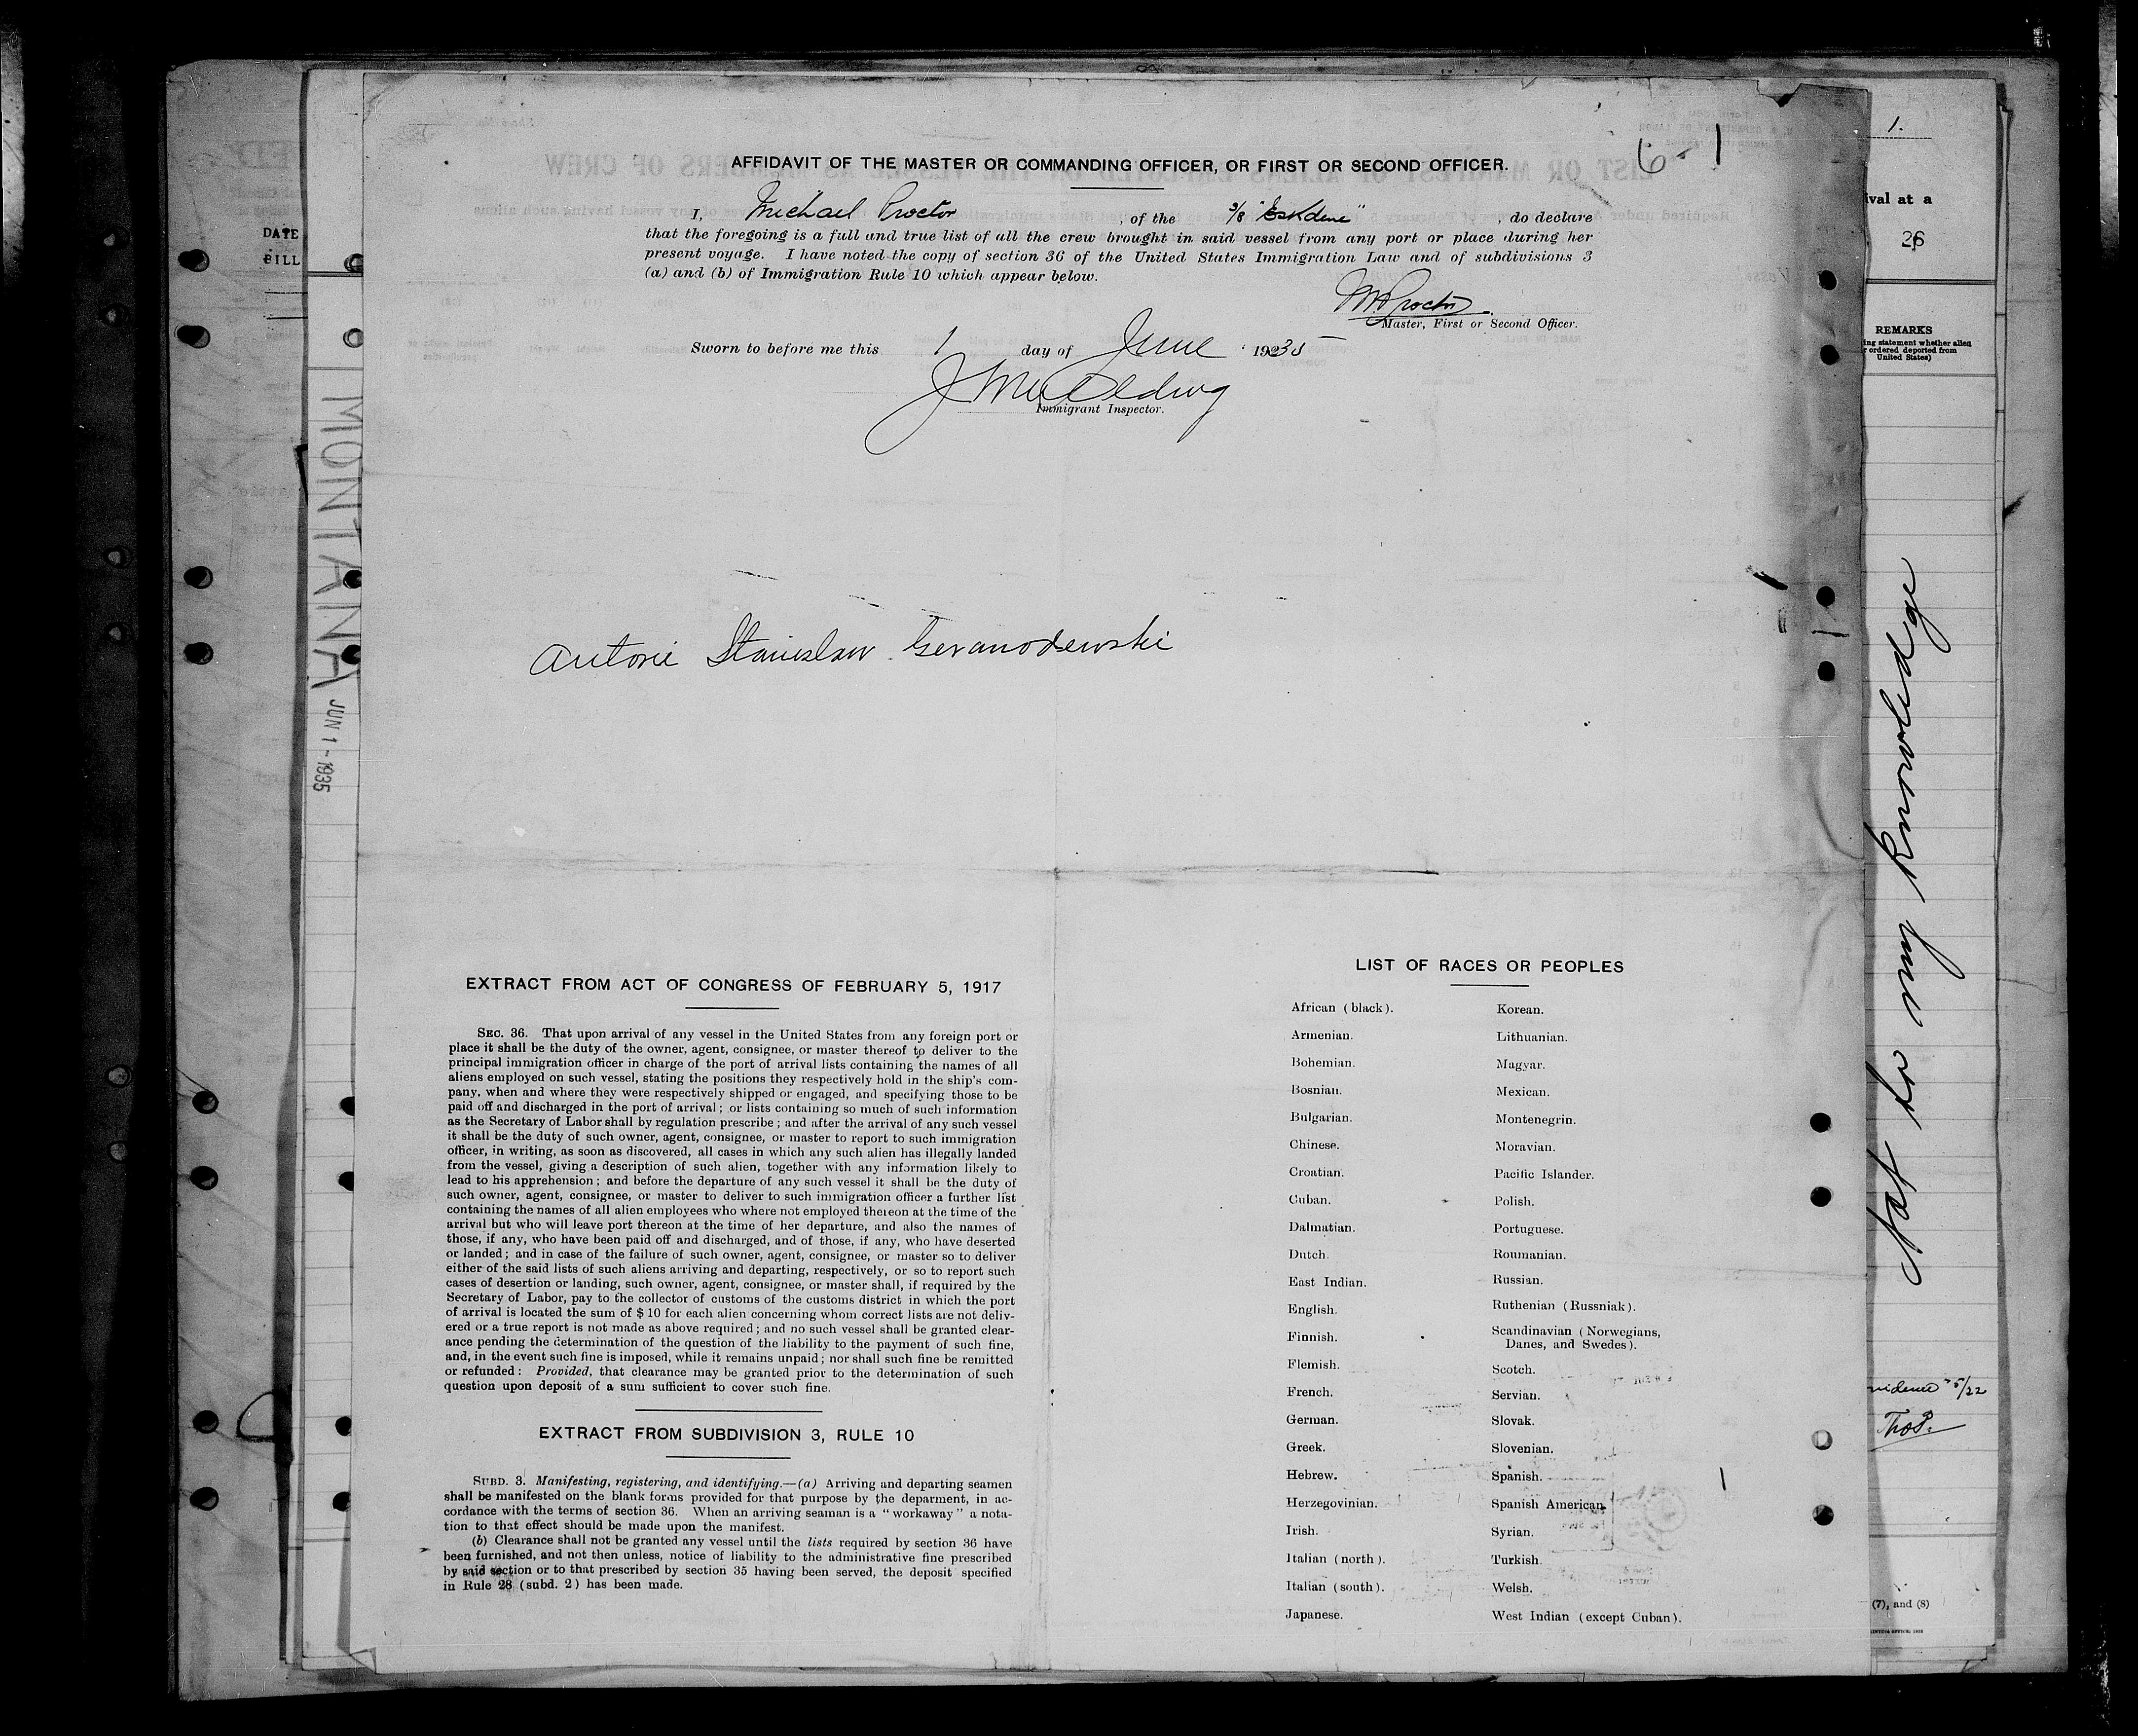 6-1
AFFIDAVIT OF THE MASTER OR COMMANDING OFFICER, OR FIRST OR SECOND OFFICER.
I, Michael Proctor, of the S/S "Eskdene", do declare
that the foregoing is a full and true list of all the crew brought in said vessel from any port or place during her
present voyage. I have noted the copy of section 36 of the United States Immigration Law and of subdivisions 3
(a) and (b) of Immigration Rule 10 which appear below.
M. Proctor
Master, First or Second Officer.
Sworn to before me this 1 day of June, 1935
Immigrant Inspector.
Antoni Stanislaw
EXTRACT FROM ACT OF CONGRESS OF FEBRUARY 5, 1917
SEC. 36. That upon arrival of any vessel in the United States from any foreign port or
place it shall be the duty of the owner, agent, consignee, or master thereof to deliver to the
principal immigration officer in charge of the port of arrival lists containing the names of all
aliens employed on such vessel, stating the positions they respectively hold in the ship's com-
pany, when and where they were respectively shipped or engaged, and specifying those to be
paid off and discharged in the port of arrival; or lists containing so much of such information
as the Secretary of Labor shall by regulation prescribe; and after the arrival of any such vessel
it shall be the duty of such owner, agent, consignee, or master to report to such immigration
officer, in writing, as soon as discovered, all cases in which any such alien has illegally landed
from the vessel, giving a description of such alien, together with any information likely to
lead to his apprehension; and before the departure of any such vessel it shall be the duty of
such owner, agent, consignee, or master to deliver to such immigration officer a further list
containing the names of all alien employees who where not employed thereon at the time of the
arrival but who will leave port thereon at the time of her departure, and also the names of
those, if any, who have been paid off and discharged, and of those, if any, who have deserted
or landed; and in case of the failure of such owner, agent, consignee, or master so to deliver
either of the said lists of such aliens arriving and departing, respectively, or so to report such
cases of desertion or landing, such owner, agent, consignee, or master shall, if required by the
Secretary of Labor, pay to the collector of customs of the customs district in which the port
of arrival is located the sum of $10 for each alien concerning whom correct lists are not deliv-
ered or a true report is not made as above required; and no such vessel shall be granted clear-
ance pending the determination of the question of the liability to the payment of such fine,
and, in the event such fine is imposed, while it remains unpaid; nor shall such fine be remitted
or refunded: Provided, that clearance may be granted prior to the determination of such
question upon deposit of a sum sufficient to cover such fine.
EXTRACT FROM SUBDIVISION 3, RULE 10
SUBD. 3. Manifesting, registering, and identifying.—(a) Arriving and departing seamen
shall be manifested on the blank forms provided for that purpose by the deparment, in ac-
cordance with the terms of section 36. When an arriving seaman is a "workaway" a nota-
tion to that effect should be made upon the manifest.
(b) Clearance shall not be granted any vessel until the lists required by section 36 have
been furnished, and not then unless, notice of liability to the administrative fine prescribed
by said section or to that prescribed by section 35 having been served, the deposit specified
in Rule 28 (subd. 2) has been made.
LIST OF RACES OR PEOPLES
African (black).
Armenian.
Bohemian.
Bosnian.
Bulgarian.
Chinese.
Croatian.
Cuban.
Dalmatian.
Dutch.
East Indian.
English.
Finnish.
Flemish.
French.
German.
Greek.
Hebrew.
Herzegovinian.
Irish.
Italian (north).
Italian (south).
Japanese.
Korean.
Lithuanian.
Magyar.
Mexican.
Montenegrin.
Moravian.
Pacific Islander.
Polish.
Portuguese.
Roumanian.
Russian.
Ruthenian (Russniak).
Scandinavian (Norwegians,
Danes, and Swedes).
Scotch.
Servian.
Slovak.
Slovenian.
Spanish.
Spanish American.
Syrian.
Turkish.
Welsh.
West Indian (except Cuban).
DATE
BILL
MONTANA
JUN 1 - 1935
1.
ival at a
26
REMARKS
ing statement whether alien
r ordered deported from
United States)
Not to my knowledge
5/22
(7), and (8)